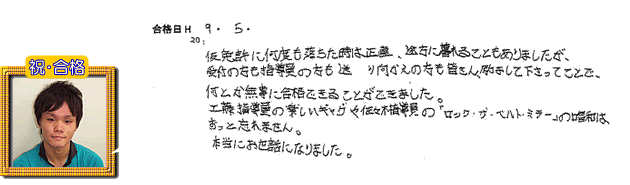 祝・合格
合格日H 9. 5.
20:
仮免許に何度も落ちた時は正直、途方に暮れることもありましたが、
受付の方も指導員の方も送り向かえの方も皆さん励まして下さってことで、
何とか無事に合格できることができました。
工藤指導員の楽しいギャグや佐々木指導員の「ロック・ザ・ベルト・ミラー」の昭和は、
ずっと忘れません。
本当にお世話になりました。